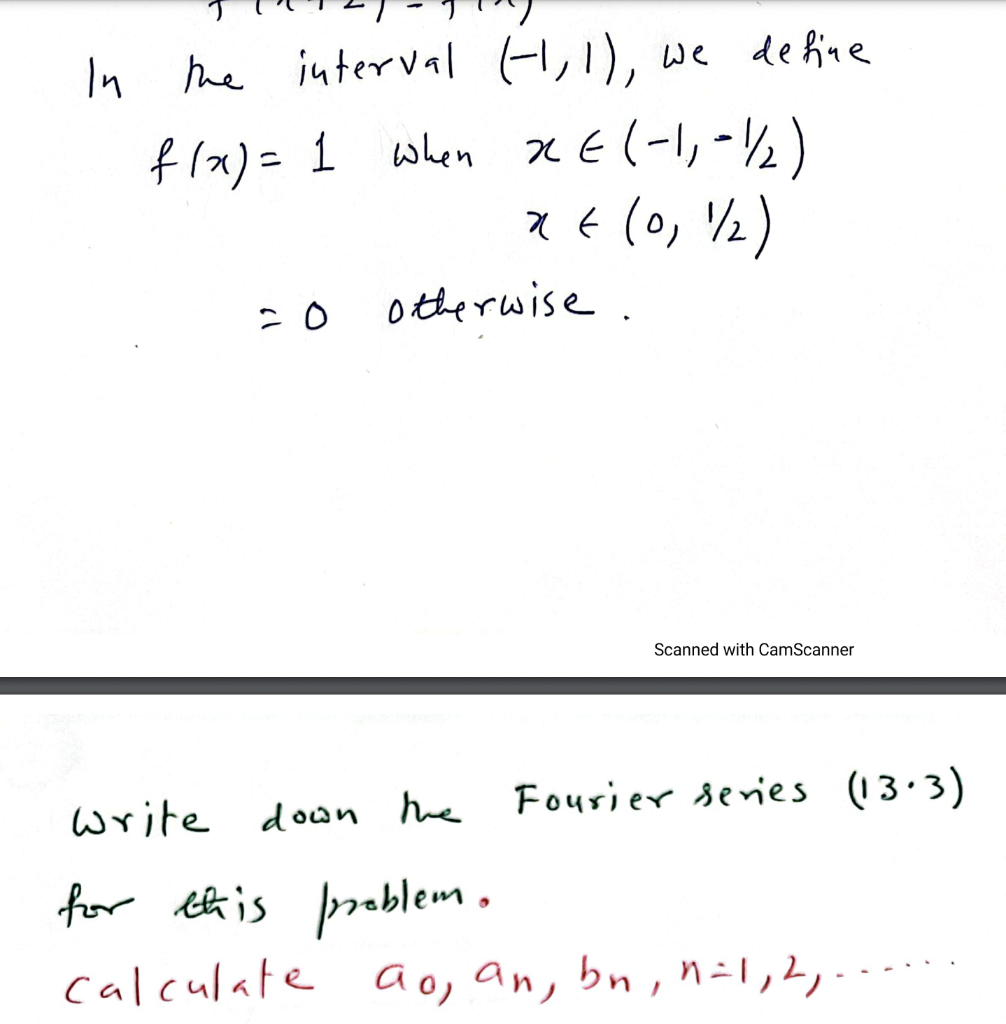 In the interval (-1, 1), we define
f(x) = 1 when x ∈ (-1, -1/2)
x ∈ (0, 1/2)
= 0 otherwise.
Scanned with CamScanner
Write down the Fourier series (13.3)
for this problem.
Calculate a₀, aₙ, bₙ, n=1,2,.......